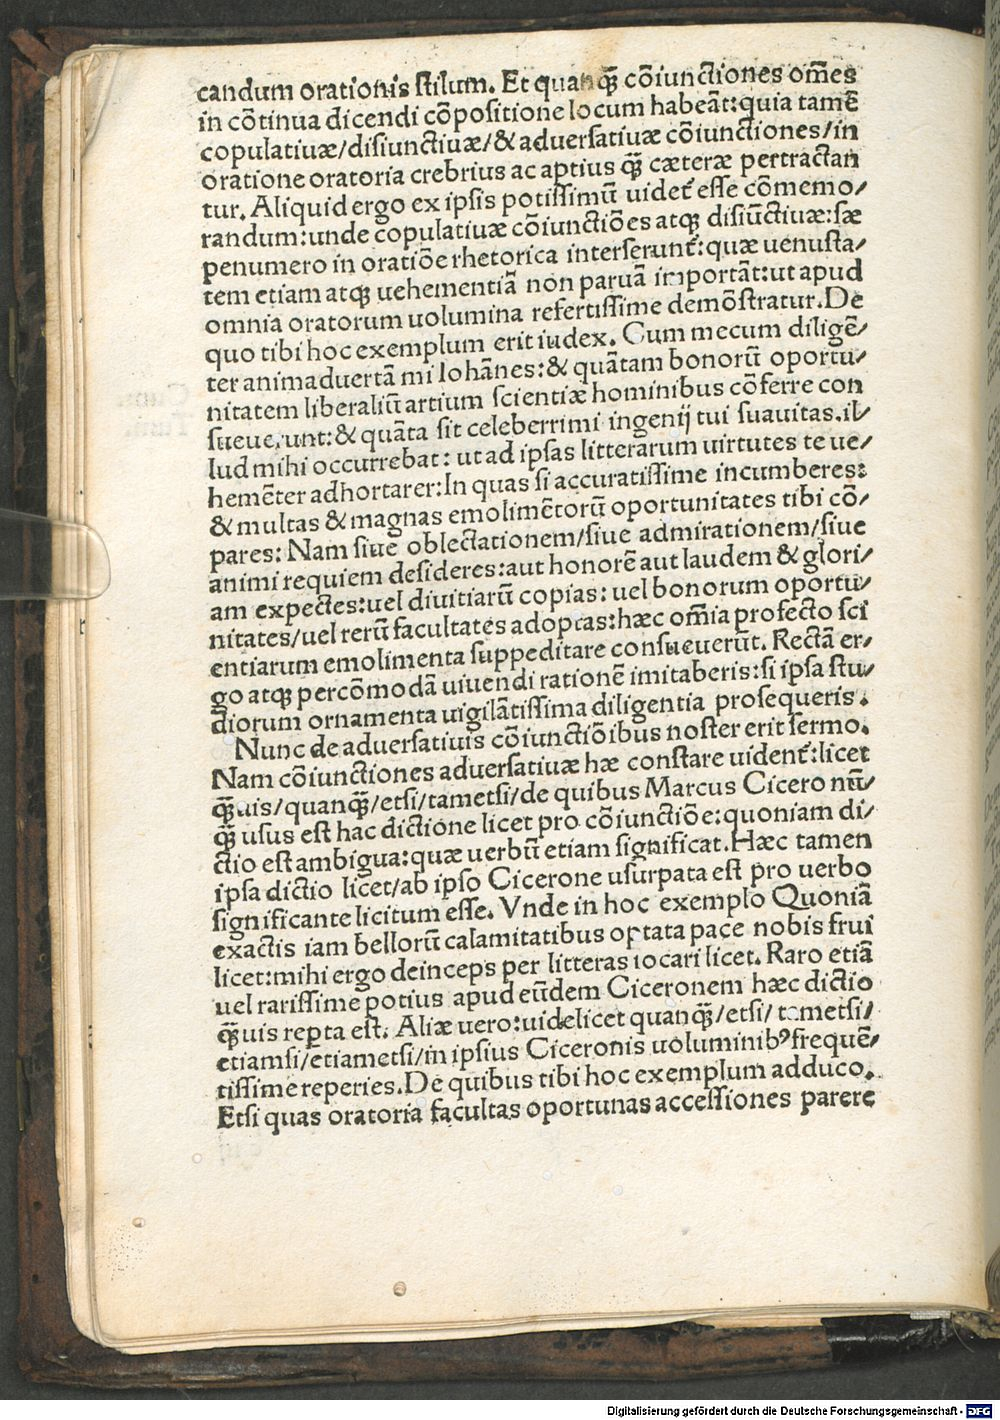 candum orationis ſtilum. Et quanq̃ cõiunctiones om̃es
in cõtinua dicendi cõpositione locum habeãt: quia tamẽ
copulatiuæ/disiunctiuæ/& aduerſatiuæ cõiunctiones/in
oratione oratoria crebrius ac aptius q̃ cæteræ pertractan
tur. Aliquid ergo ex ipsis potiſſimũ uidet̃ eſſe cõmemo/
randum: unde copulatiuæ cõiunctiões atq; disiũctiuæ: ſæ
penumero in oratiõe rhetorica interſerunt̃: quæ uenuſta/
tem etiam atq; uehementiã non paruã importãt: ut apud
omnia oratorum uolumina refertiſſime demõſtratur. De
quo tibi hoc exemplum erit iudex. Cum mecum diligẽ/
ter animaduertã mi Iohãnes: & quãtam bonorũ oportu/
nitatem liberaliũ artium ſcientiæ hominibus cõferre con
ſueuerunt: & quãta sit celeberrimi ingenij tui ſuauitas. il/
lud mihi occurrebat: ut ad ipsas litterarum uirtutes te ue/
hemẽter adhortarer: In quas si accuratiſſime incumberes:
& multas & magnas emolimẽtorũ oportunitates tibi cõ/
pares: Nam siue oblectationem/siue admirationem/siue
animi requiem deſideres: aut honorẽ aut laudem & glori/
am expectes: uel diuitiarũ copias: uel bonorum oportu/
nitates/uel rerũ facultates adoptas: hæc om̃ia profecto ſci
entiarum emolimenta ſuppeditare conſueuerũt. Rectã er/
go atq; percõmodã uiuendi rationẽ imitaberis: si ipsa ſtu/
diorum ornamenta uigilãtiſſima diligentia proſequeris.
Nunc de aduerſatiuis cõiunctiõibus noſter erit ſermo.
Nam cõiunctiones aduerſatiuæ hæ conſtare uident̃: licet
q̃uis/quanq̃/etsi/tametsi/de quibus Marcus Cicero nũ/
q̃ usus eſt hac dictione licet pro cõiunctiõe: quoniam di/
ctio eſt ambigua: quæ uerbũ etiam significat. Hæc tamen
ipsa dictio licet/ab ipso Cicerone uſurpata eſt pro uerbo
significante licitum eſſe. Vnde in hoc exemplo Quoniã
exactis iam bellorũ calamitatibus optata pace nobis frui
licet: mihi ergo deinceps per litteras iocari licet. Raro etiã
uel rariſſime potius apud eũdem Ciceronem hæc dictio
q̃uis reperta eſt. Aliæ uero: uidelicet quanq̃/etsi/tametsi/
etiamsi/etiametsi/in ipsius Ciceronis uoluminibꝰ frequẽ/
tiſſime reperies. De quibus tibi hoc exemplum adduco.
Etsi quas oratoria facultas oportunas acceſſiones parere
Digitalisierung gefördert durch die Deutsche Forschungsgemeinschaft - DFG